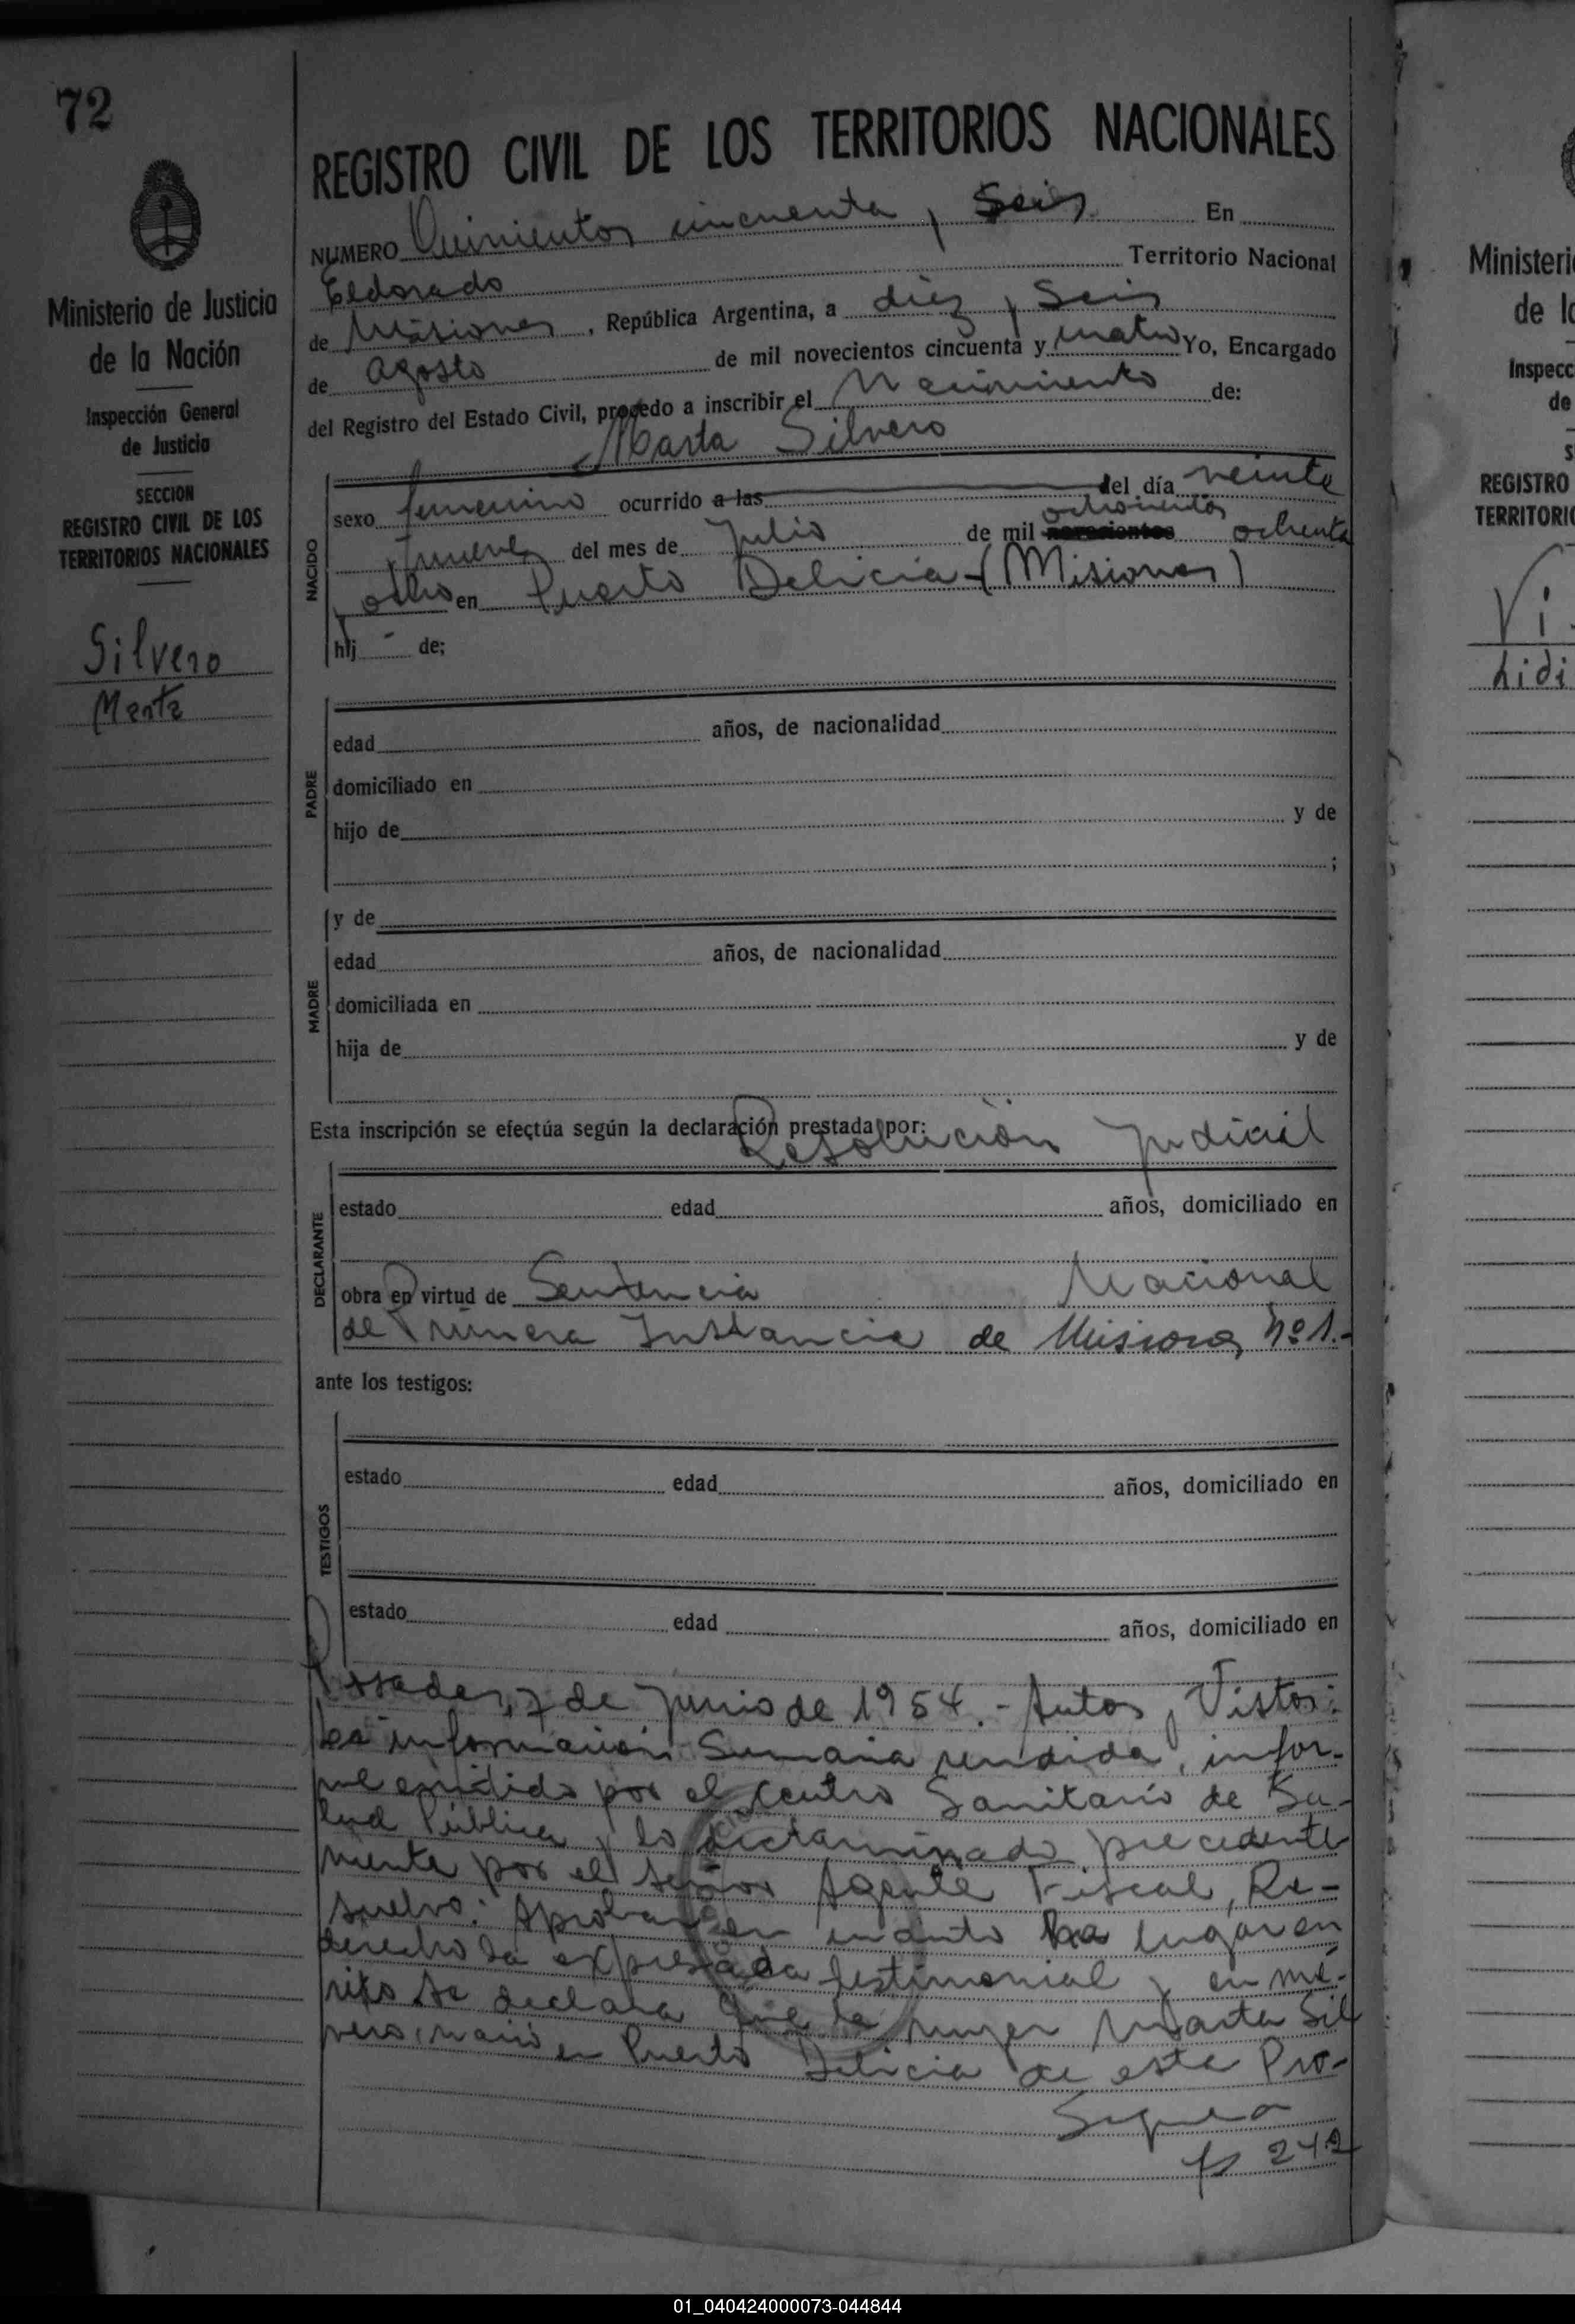 72
REGISTRO CIVIL DE LOS TERRITORIOS NACIONALES
NUMERO Quinientos cincuenta y Seis En
Eldorado Territorio Nacional
de Misiones, República Argentina, a diez y Seis
de agosto de mil novecientos cincuenta y cuatro Yo, Encargado
del Registro del Estado Civil, procedo a inscribir el Nacimiento de:
Marta Silvero
Ministerio de Justicia
de la Nación
Inspección General
de Justicia
SECCION
REGISTRO CIVIL DE LOS
TERRITORIOS NACIONALES
Silvero
Marta
NACIDO
sexo femenino ocurrido a las del día veinte
y nueve del mes de Julio de mil novecientos ochocientos ochenta
y ocho en Puerto Delicia - (Misiones)
hij - de;
PADRE
edad años, de nacionalidad
domiciliado en
hijo de y de
;
MADRE
y de
edad años, de nacionalidad
domiciliada en
hija de y de
Esta inscripción se efectúa según la declaración prestada por:
Resolución Judicial
DECLARANTE
estado edad años, domiciliado en
obra en virtud de Sentencia Nacional
de Primera Instancia de Misiones Nº 1.-
ante los testigos:
TESTIGOS
estado edad años, domiciliado en
estado edad años, domiciliado en
Posadas, 7 de Junio de 1954.- Autos y Vistos:
La información Sumaria rendida, infor-
me emitido por el Centro Sanitario de Sa-
lud Pública y lo dictaminado precedente
mente por el Señor Agente Fiscal, Re-
suelvo: Aprobar en cuanto ha lugar en
derecho la expresada testimonial y en mé-
rito se declara que la mujer Marta Sil
vero, nació en Puerto Delicia de este Pro-
Sigue a
fs 242
Ministeri
de l
Inspecc
de
S
REGISTRO
TERRITORI
Vi
Lidi
01_040424000073-044844